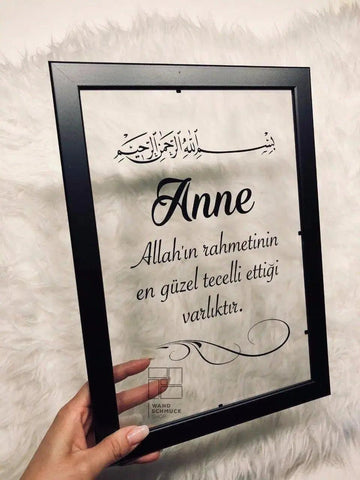 بِسْمِ اللّٰهِ الرَّحْمٰنِ الرَّحِيْمِ
Anne
Allah'ın rahmetinin
en güzel tecelli ettiği
varlıktır.
WAND
SCHMUCK
SHOP